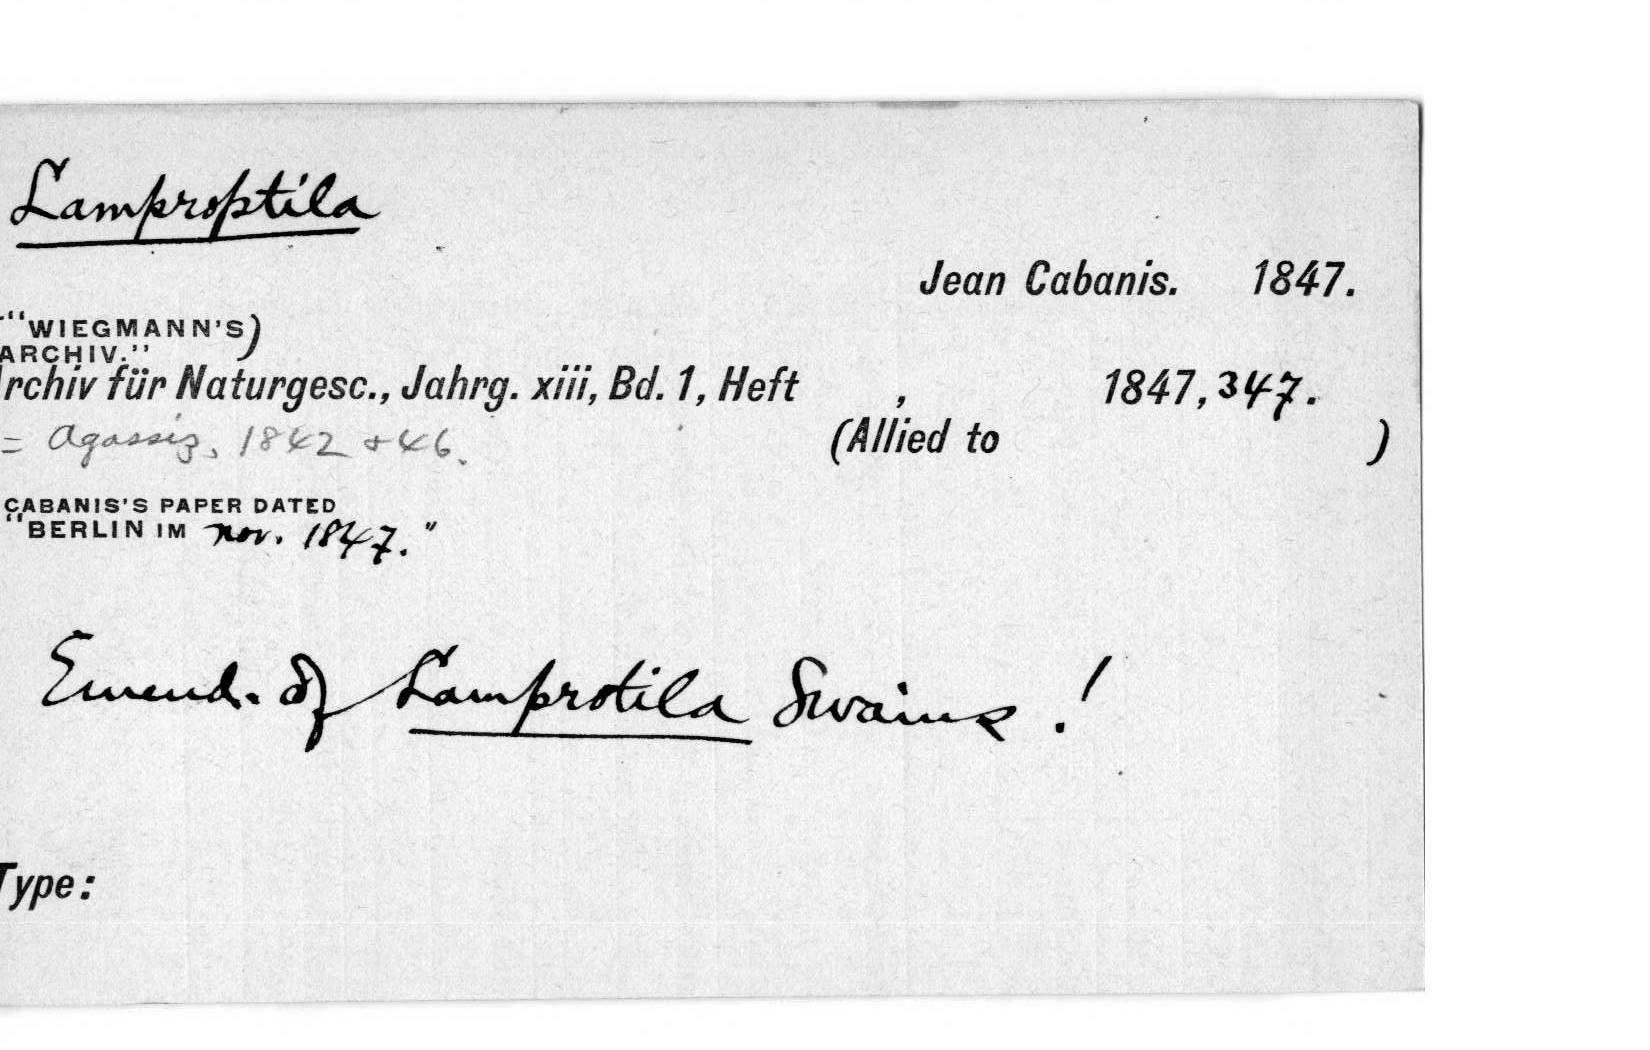 Lamproptila
Jean Cabanis. 1847.
"WIEGMANN'S)
ARCHIV."
Archiv für Naturgesc., Jahrg. xiii, Bd. 1, Heft , 1847, 347.
= Agassiz, 1842 + 46.
(Allied to )
CABANIS'S PAPER DATED
"BERLIN IM nov. 1847."
Emend. of Lamprotila Swains. !
Type: